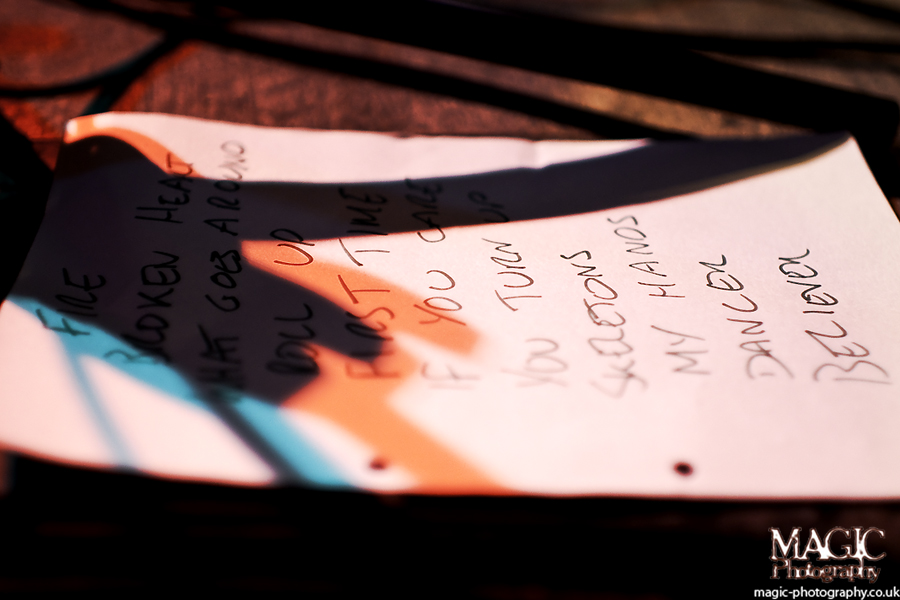 FIRE
BROKEN HEART
WHAT GOES AROUND
ROLL UP
FIRST TIME
IF YOU CARE
YOU TURN UP
SKELETONS
MY HANDS
DANCER
BELIEVER
MAGIC
Photography
magic-photography.co.uk